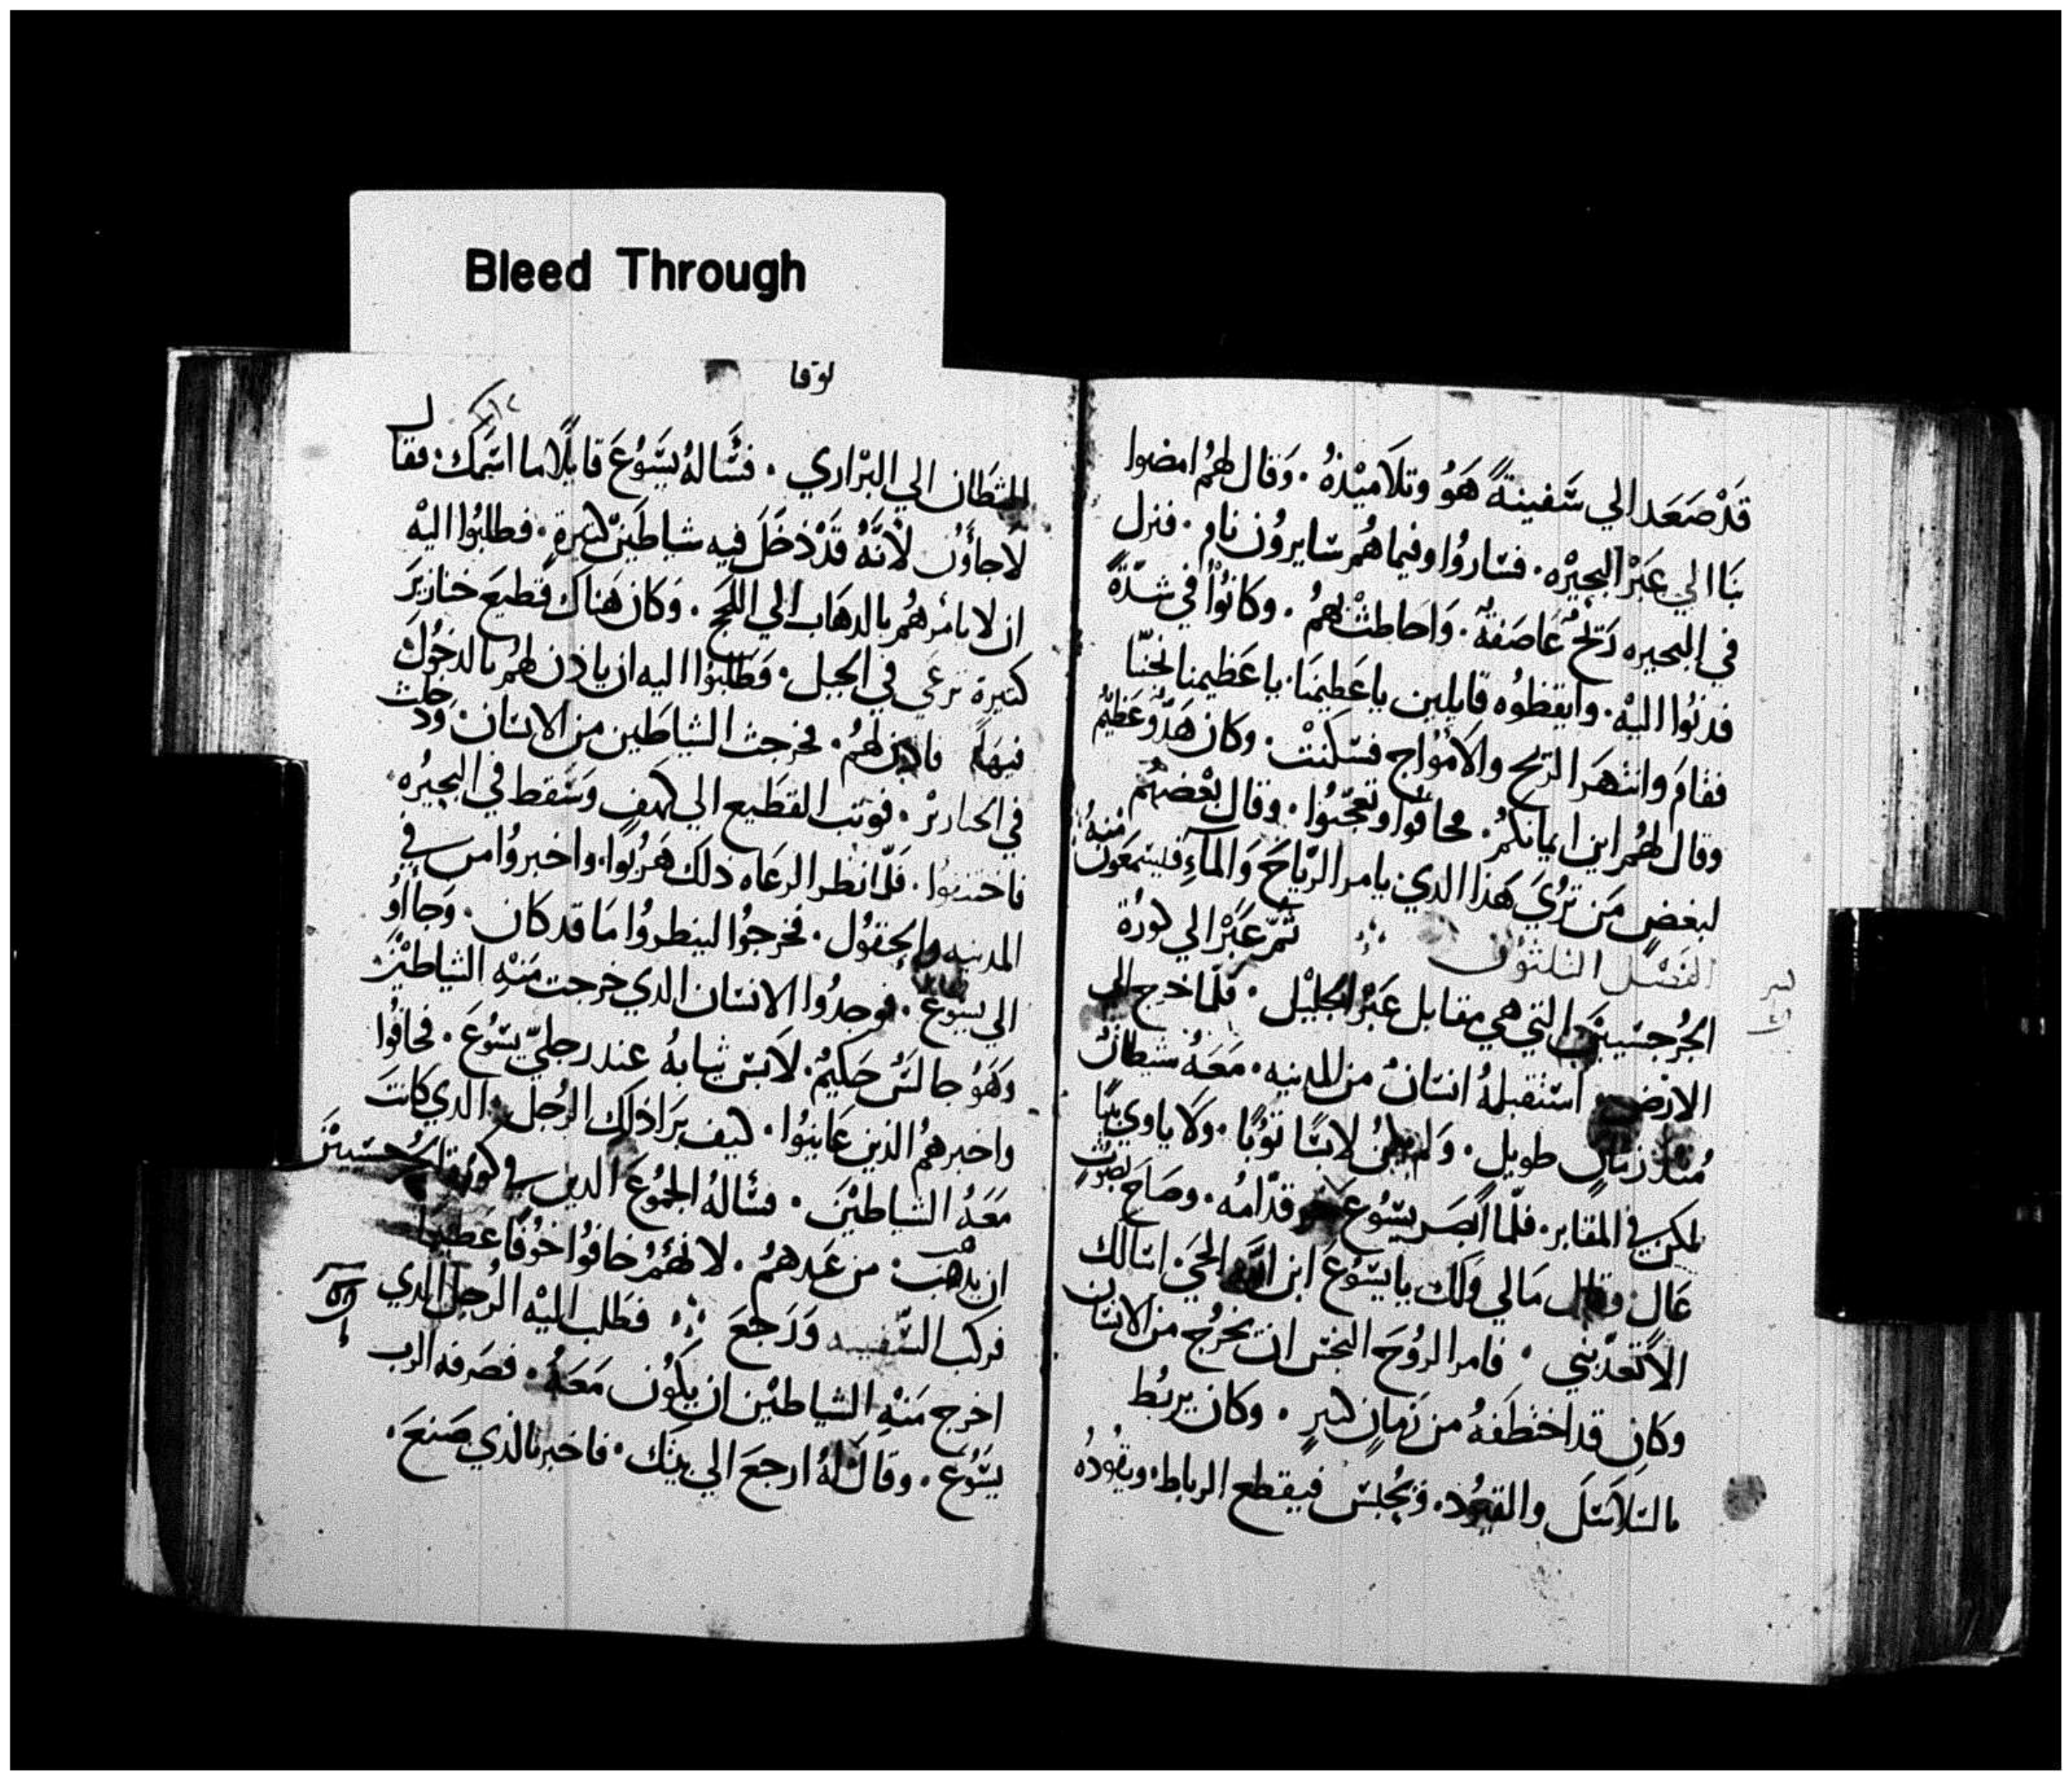 Bleed Through
قَدْ صَعَد الي سَفينةً هَوُ وتلَاميْذهُ · وَقال لهمُ امضوا
بنَا الي عَبَرْ البحيْره · فسَاروُا وفيما هُم سَايروُن نام · فنزل
في البحيره رَيحُ عَاصَفةُ · وَاحَاطتْ بهمُ · وكانوُا في شدّةً
فدنوُا اليهْ · وايقظوُه قايلين ياعَظيمنَا · ياعَظيمنا نجنّا
فقامَ وانتهرَ الريْح والامْواج فسَكنتْ · وكان هَدُوءُ عَظيمُ
وقال لهمُ اين ايمانكمُ · فخافوا وتعجّبوُا · وقال بعْضهُم
لبعَضٍ مَن تُريَ هَذا الدي يامر الرّياحَ وَالماءِ فليسَمعَون منهُ
الفصَل الثلثوُن ثمّ عَبَرْ الي كورُة
الجُرجسَيينَ التي هي مقابل عَبَرْ الجَليْل · فلّما خرج الي
الارْض استَقبلهُ انسَانُ من المدينه · مَعَهُ شيطانُ
مُنذ زمَانٍ طويلٍ · وَلم يكنُ لابسًا ثوُبًا · ولَا ياوي بيتًا
لكن في المقابر · فلّما ابصَر يسَوُع خر قدّامهُ · وصَاحَ بصَوُت
عَالٍ وقال مَالي وَلك يا يسَوُعَ ابن اللَّه الحَيَ · اسَالك
الّا تعَذّبني · فامر الروُحَ النجسَ ان يخرُج من الانسَان
وكان قد اختطَفهُ من زمانٍ كبيرٍ · وكان يربُط
بالسَلاسَل والقيوُد · ويُحبسَ فيقطع الرباط · ويقوُدهُ
لوقا
الشيَطان الي البْراري · فسَاَلهُ يسَوُعَ قايلًا ما اسَمك · فقال
لاجاؤُن لانَّهُ قدْ دخَلَ فيه شياطيَن كثيرةٍ · فطلبوُا اليهْ
ان لا يامُرهمُ بالدهَاب الي اللجَج · وَكان هَناك قطيعَ خنازيرَ
كثيرة ترعَي في الجبل · فَطَلبوُا اليه ان ياذن لهمُ بالدخوُلَ
فيهَا فاذن لهمُ · فخرجت الشياطين من الانسَان وَدخلت
في الخنازيرْ · فوثب القطَيع الي كهَفٍ وَسَقط في البحيرُه
فاختنقوُا · فلّما نظر الرعَاه ذلك هَربوُا · واخبروُا من في
المدينه والحَقوُل · فخرجوُا لينظروُا مَا قد كان · وَجاؤُا
الي يسَوُعَ · فوجدوُا الانسَان الدي خرجت مَنهْ الشياطيْن
وَهَوُ جالسُ حَكيمُ · لَابسَ ثيابهُ عند رجليّ يسَوُعَ · فخافوُا
واخبرهمُ الذين عَاينوُا · كيف برَا ذلك الرُجل الدي كانتَ
مَعَهُ الشياطيْنَ · فسَالهُ الجموُعَ الدين في كورة الجُرجسَييْنَ
ان يدهَب من عَندهمُ · لانهُمْ خافوُا خوُفًا عَظيمًا
فركب السّفينه وَرَجعَ · فطَلب اليْه الرجل الدي
اخرج مَنهْ الشياطيْن ان يكوُن مَعَهُ · فصَرفه الرب
يسَوُعَ · وقال لهُ ارجعَ الي بيتَك · فاخبر بالذي صَنعَ ·